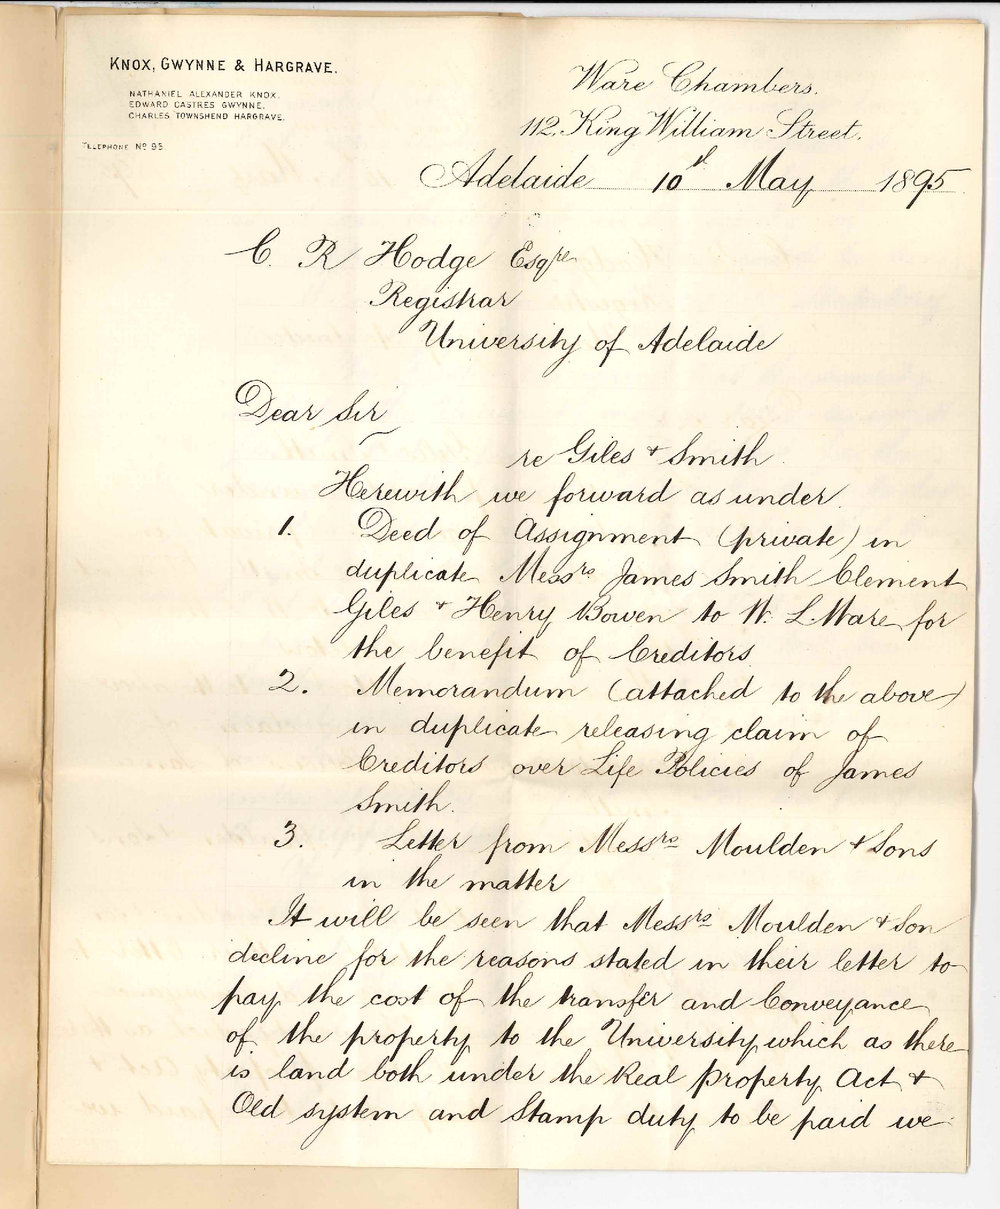 KNOX, GWYNNE & HARGRAVE.
NATHANIEL ALEXANDER KNOX.
EDWARD CASTRES GWYNNE.
CHARLES TOWNSHEND HARGRAVE.
TELEPHONE Nº 95
Ware Chambers.
112. King William Street.
Adelaide 10th May 1895
C. R Hodge Esqre
Registrar
University of Adelaide
Dear Sir
re Giles & Smith
Herewith we forward as under.
1. Deed of Assignment (private) in
duplicate Messrs James Smith Clement
Giles & Henry Bowen to W. L. Ware for
the benefit of Creditors
2. Memorandum (attached to the above)
in duplicate releasing claim of
Creditors over Life Policies of James
Smith.
3. Letter from Messrs Moulden & Sons
in the matter
It will be seen that Messrs Moulden & Son
decline for the reasons stated in their letter to
pay the cost of the transfer and Conveyance
of the property to the University which as there
is land both under the Real Property Act &
Old system and Stamp duty to be paid we